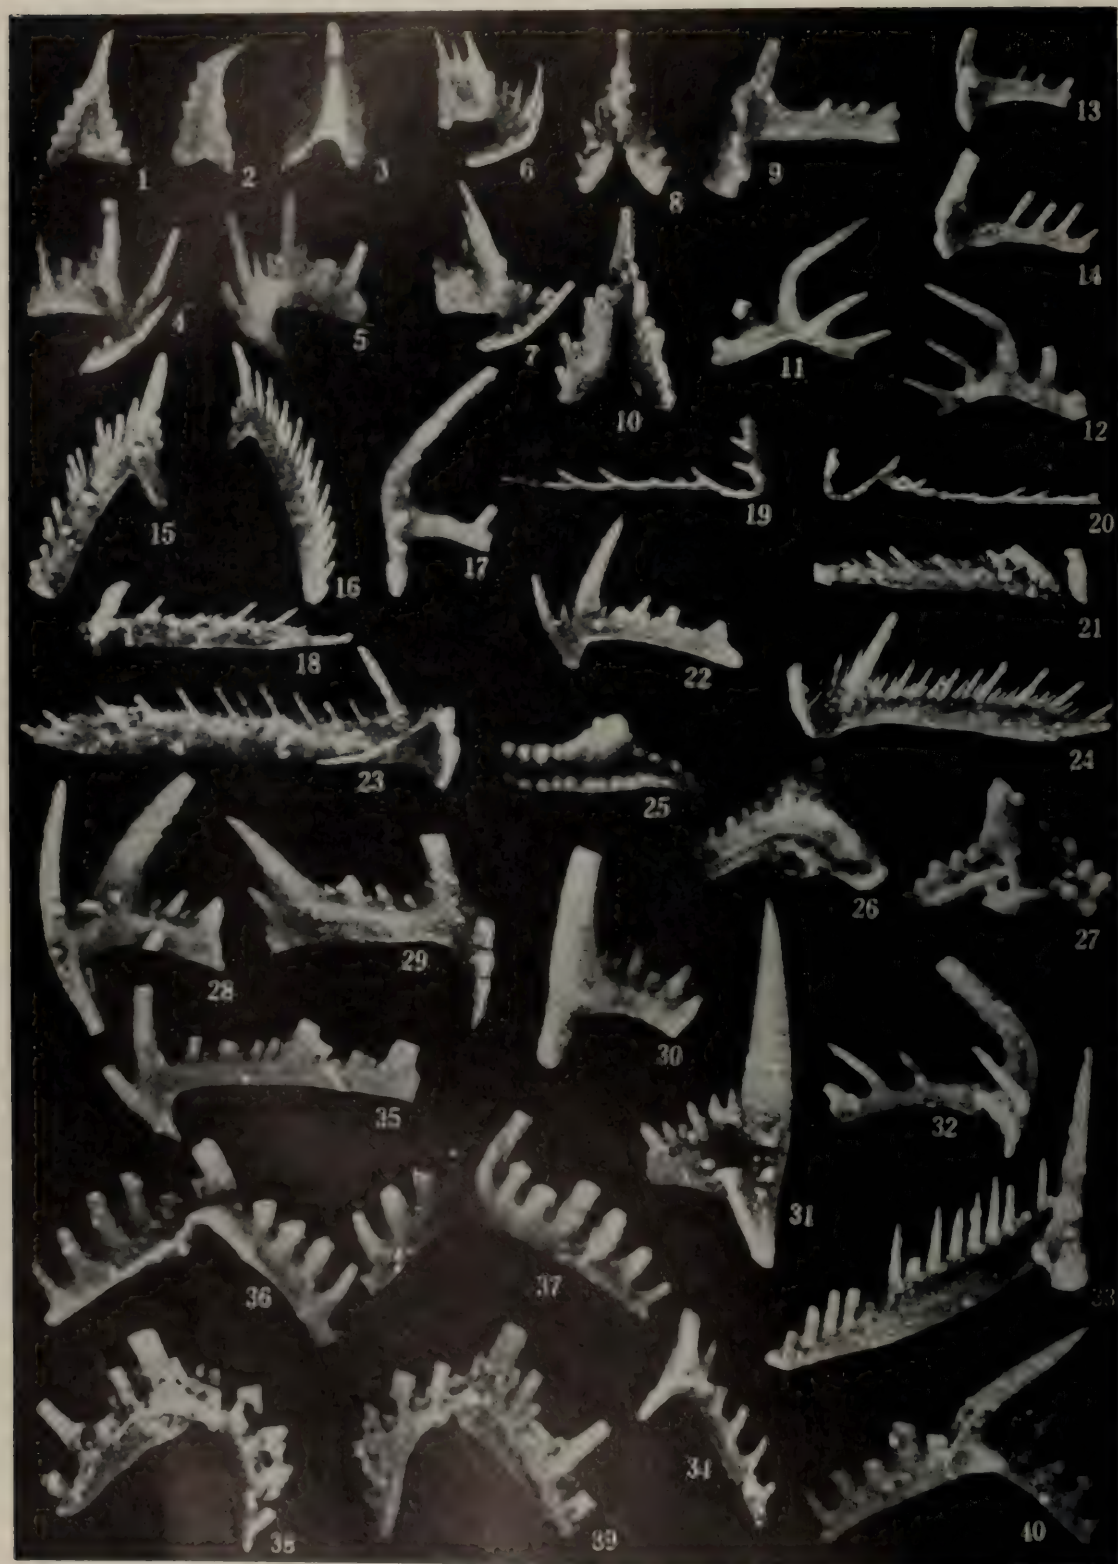 1
2
3
6
8
9
13
14
4
5
7
10
11
12
15
16
17
19
20
18
22
21
23
25
24
28
29
26
27
30
35
32
31
36
37
33
38
39
34
40